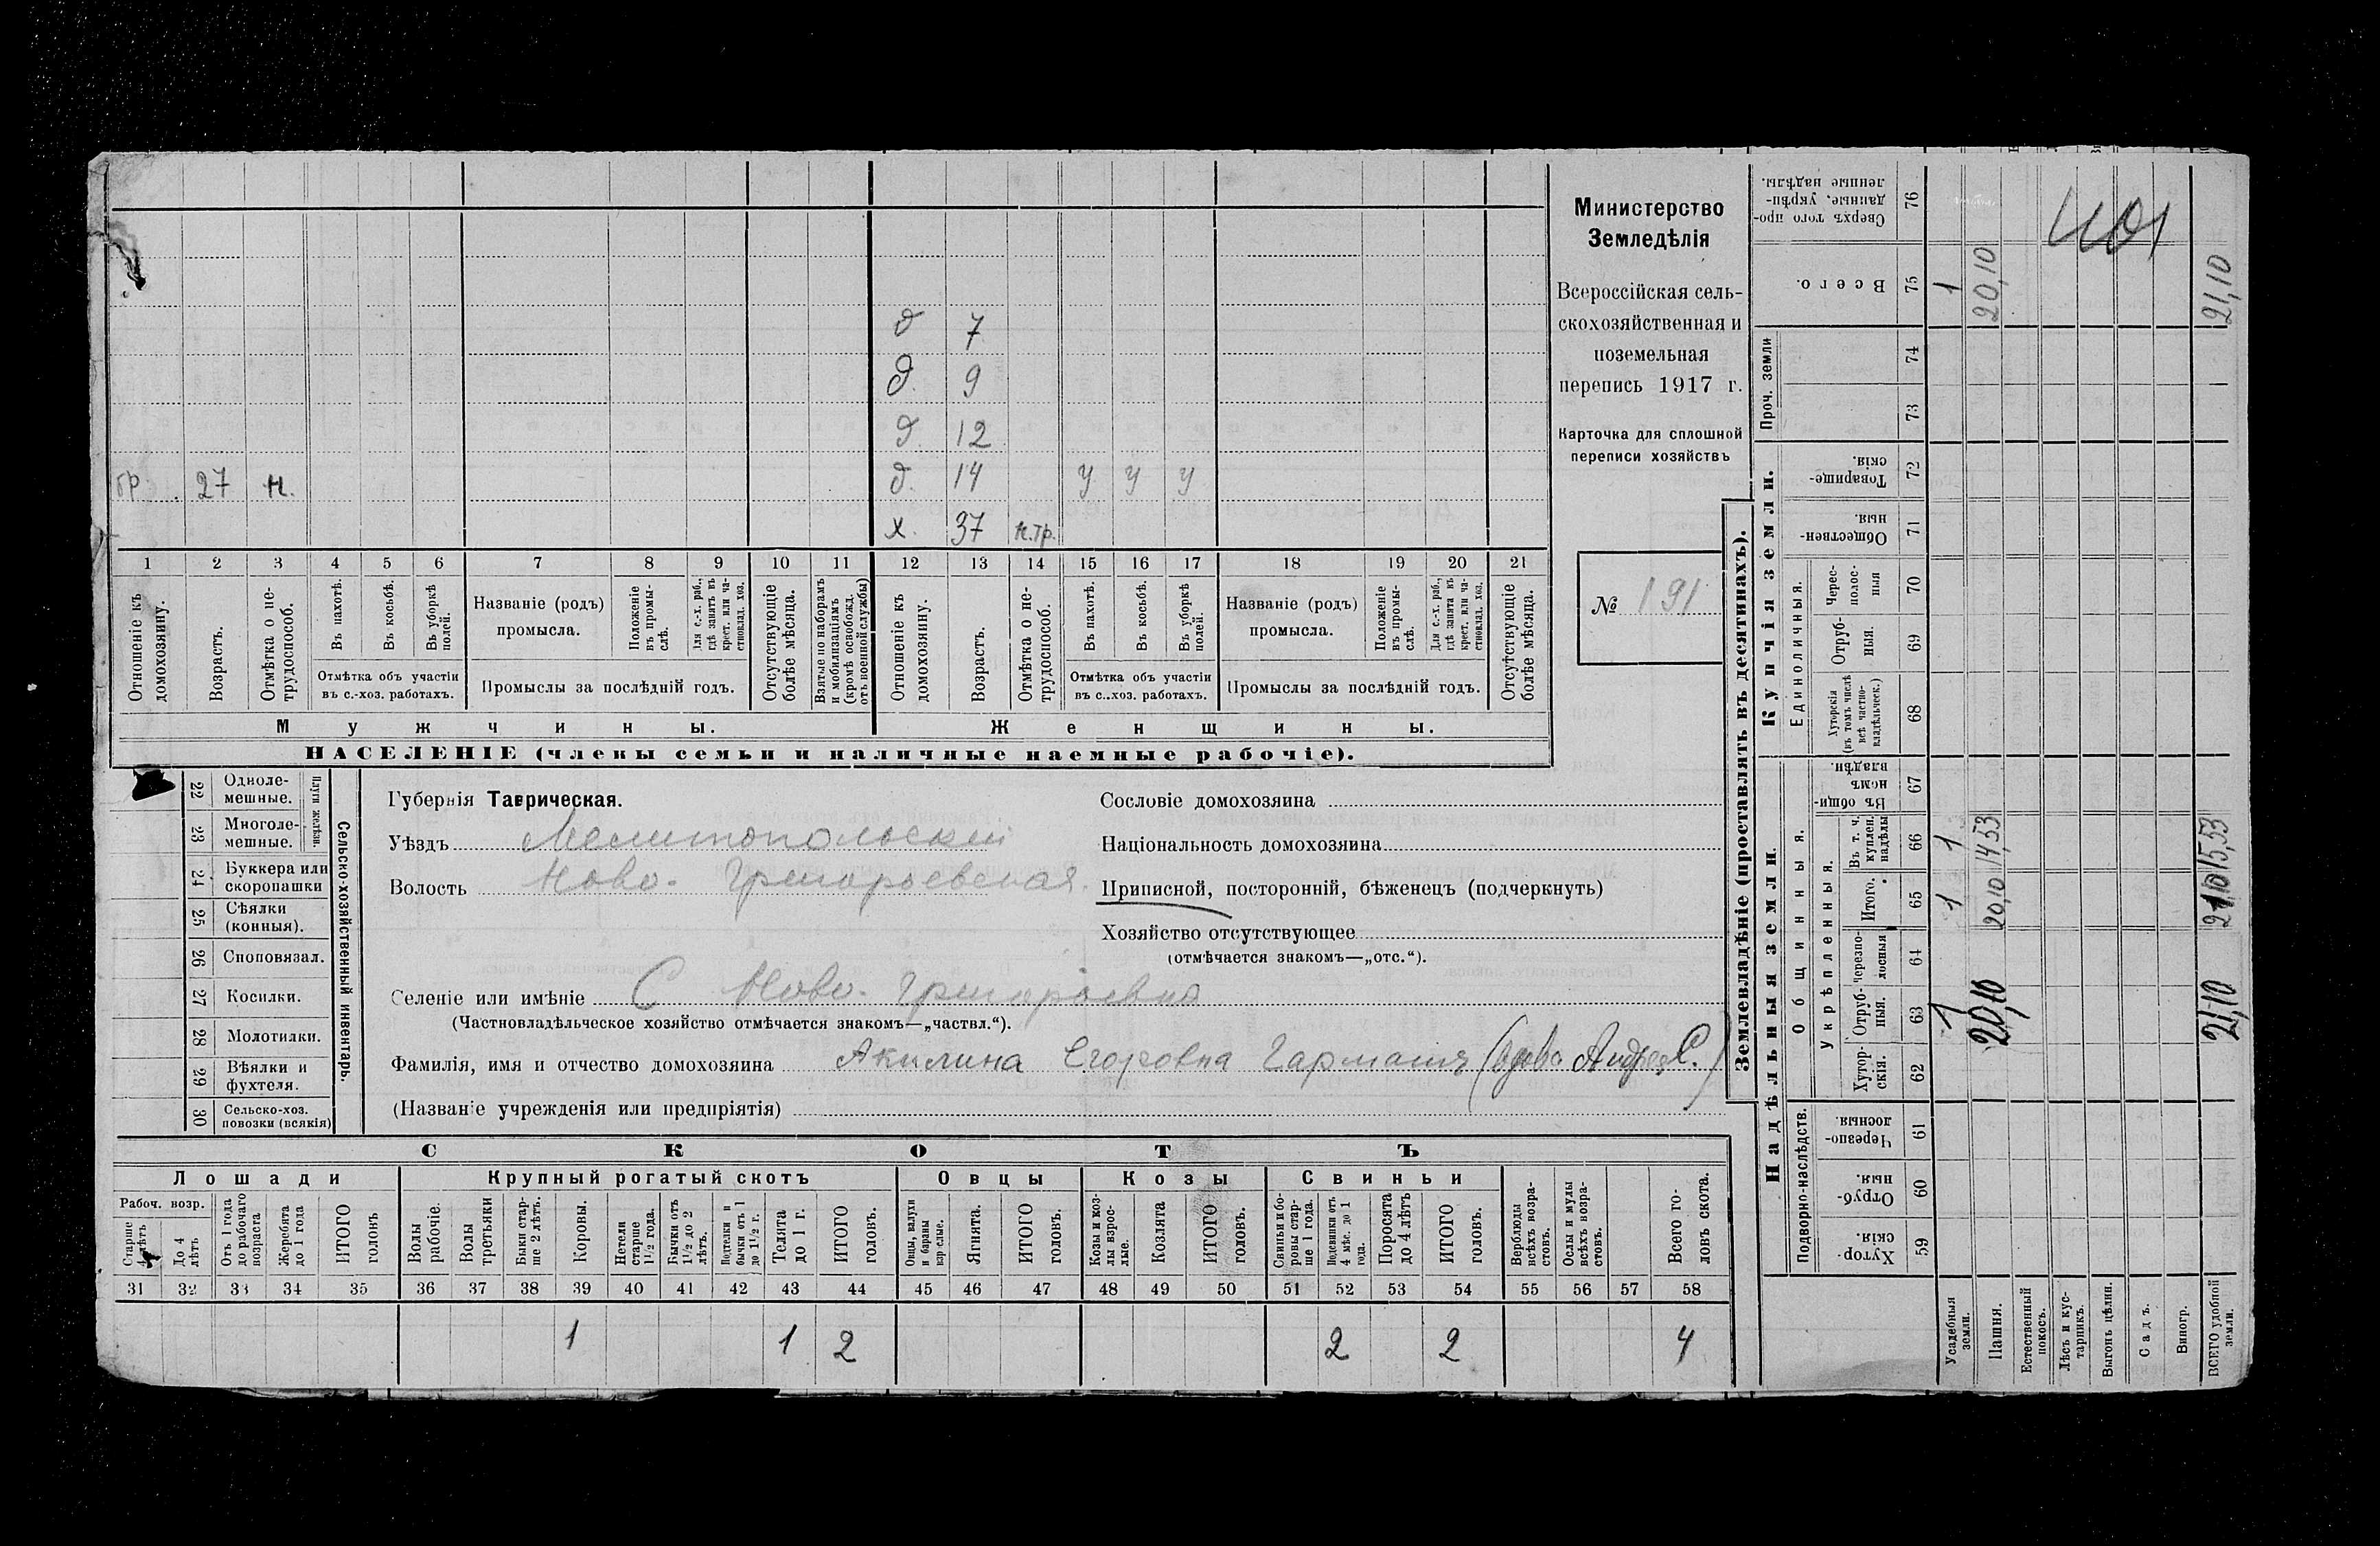 д 7
д. 9
д. 12
гр. 27 н. д. 14 у у у
х. 37 н.тр.
1 2 3 4 5 6 7 8 9 10 11 12 13 14 15 16 17 18 19 20 21
Отношеніе къ домохозяину.
Возрастъ.
Отмѣтка о не-
трудоспособ.
Въ пахотѣ.
Въ косьбѣ.
Въ уборкѣ
полей.
Отмѣтка объ участіи
въ с.-хоз. работахъ.
Названіе (родъ)
промысла.
Положеніе
въ промы-
слѣ.
Для с.-х. раб.,
гдѣ занятъ въ
крест. или ча-
стновлад. хоз.
Промыслы за послѣдній годъ.
Отсутствующіе
болѣе мѣсяца.
Взятые по наборамъ
и мобилизаціямъ
(кромѣ освобожд.
отъ военной службы)
Отношеніе къ
домохозяину.
Возрастъ.
Отмѣтка о не-
трудоспособ.
Въ пахотѣ.
Въ косьбѣ.
Въ уборкѣ
полей.
Отмѣтка объ участіи
въ с..хоз. работахъ.
Названіе (родъ)
промысла.
Положеніе
въ промы-
слѣ.
Для с.-х. раб.,
гдѣ занята въ
крест. или ча-
стновлад. хоз.
Промыслы за послѣдній годъ.
Отсутствующіе
болѣе мѣсяца.
Мужчины. Женщины.
НАСЕЛЕНІЕ (члены семьи и наличные наемные рабочіе).
Министерство
Земледѣлія
Всероссійская сель-
скохозяйственная и
поземельная
перепись 1917 г.
Карточка для сплошной
переписи хозяйствъ
№ 191
22 Одноле-
мешные.
23 Многоле-
мешные.
Плуги желѣзн.
24 Буккера или
скоропашки
25 Сѣялки
(конныя).
26 Сноповязал.
27 Косилки.
28 Молотилки.
29 Вѣялки и
фухтеля.
30 Сельско-хоз.
повозки (всякія)
Сельско-хозяйственный инвентарь.
Губернія Таврическая.
Уѣздъ Мелитопольский
Волость Ново-Григорьевская.
Сословіе домохозяина
Національность домохозяина
Приписной, посторонній, бѣженецъ (подчеркнуть)
Хозяйство отсутствующее
(отмѣчается знакомъ—„отс.“).
Селеніе или имѣніе С Ново-Григорьевка
(Частновладѣльческое хозяйство отмѣчается знакомъ—„частвл.“).
Фамилія, имя и отчество домохозяина Акилина Егоровна Гармашъ (вдова Андрея С.)
(Названіе учрежденія или предпріятія)
СКОТЪ
Лошади Крупный рогатый скотъ Овцы Козы Свиньи
Рабоч. возр.
Старше
4 лѣтъ
До 4
лѣтъ
Отъ 1 года
до рабочаго
возраста
Жеребята
до 1 года
ИТОГО
головъ
Волы
рабочіе.
Волы
третьяки
Быки стар-
ше 2 лѣтъ.
Коровы.
Нетели
старше
1½ года.
Бычки отъ
1½ до 2
лѣтъ.
Подтелки и
бычки отъ 1
до 1½ г.
Телята
до 1 г.
ИТОГО
головъ.
Овцы, валухи
и бараны
взрослые.
Ягнята.
ИТОГО
головъ.
Козы и коз-
лы взрос-
лые.
Козлята
ИТОГО
головъ.
Свиньи и бо-
ровы стар-
ше 1 года.
Подсвинки отъ
4 мѣс. до 1
года.
Поросята
до 4 лѣтъ
ИТОГО
головъ.
Верблюды
всѣхъ возра-
стовъ.
Ослы и мулы
всѣхъ возра-
стовъ.
Всего го-
ловъ скота.
31 32 33 34 35 36 37 38 39 40 41 42 43 44 45 46 47 48 49 50 51 52 53 54 55 56 57 58
1 1 2 2 2 4
Землевладѣніе (проставлять въ десятинахъ).
Купчія земли.
Надѣльныя земли.
Сверхъ того про-
данные, укрѣп-
ленные надѣлы. 76
401
Всего. 75 1 20,10 21,10
Проч. земли 74
73
Товарище-
скія. 72
Обществен-
ныя. 71
Единоличныя.
Черес-
полос-
ныя 70
Отруб-
ныя. 69
Хуторскія
(въ томъ числѣ
всѣ частно-
владѣльческ.) 68
Общинныя.
Въ общи-
номъ
владѣн. 67
Укрѣпленныя.
Въ т. ч.
куплен.
надѣлы 66 1 14,53 15,53
Итого. 65 1 20,10 21,10
Черезпо-
лосныя 64
Отруб-
ныя. 63 1 20,10 21,10
Хутор-
скія. 62
Подворно-наслѣдств.
Черезпо-
лосныя 61
Отруб-
ныя. 60
Хутор-
скія. 59
Усадебныя
земли.
Пашня.
Естественный
покосъ.
Лѣсъ и кус-
тарникъ.
Выгонъ цѣлин.
Садъ.
Виногр.
ВСЕГО удобной
земли.